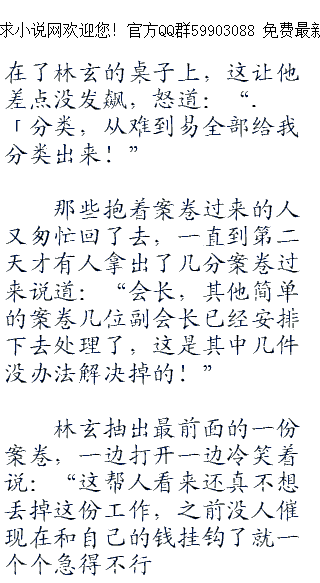 求小说网欢迎您！官方QQ群59903088 免费最新
在了林玄的桌子上，这让他
差点没发飙，怒道：“.
「分类，从难到易全部给我
分类出来！”
那些抱着案卷过来的人
又匆忙回了去，一直到第二
天才有人拿出了几分案卷过
来说道：“会长，其他简单
的案卷几位副会长已经安排
下去处理了，这是其中几件
没办法解决掉的！”
林玄抽出最前面的一份
案卷，一边打开一边冷笑着
说：“这帮人看来还真不想
丢掉这份工作，之前没人催
现在和自己的钱挂钩了就一
个个急得不行